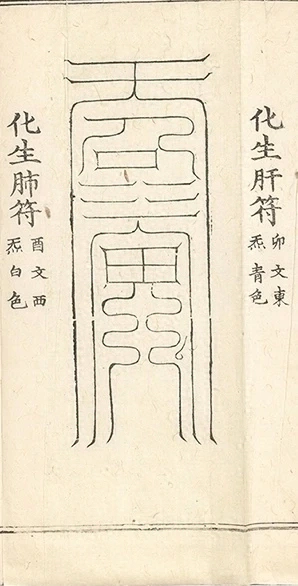 化生肝符
卯文東
炁青色
化生肺符
酉文西
炁白色